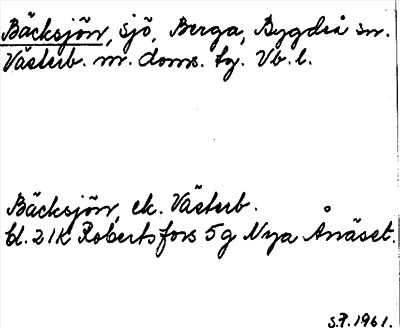 Bäcksjön, sjö, Berga, Bygdeå sn.
Västerb. m. doms. tg. Vb. l.
Bäcksjön, ek. Västerb.
bl. 21K Robertsfors 5g Nya Ånäset.
S.P. 1961.